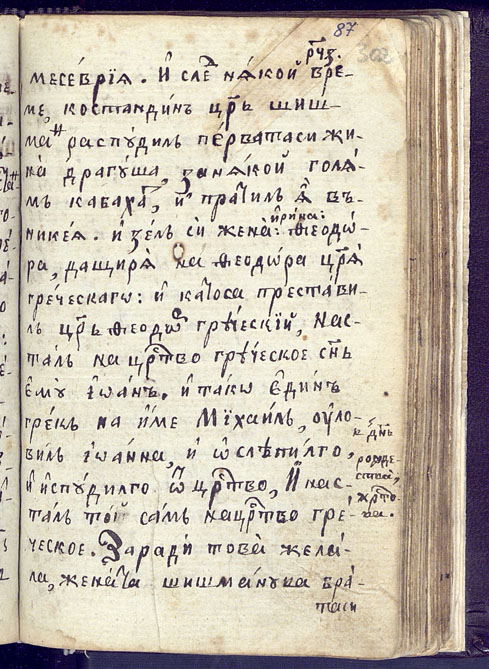 87
302
р҃чз.
месеврїѧ. И слѐ нѧ́кой вре-
ме, костандинъ цр҃ь шиш-
манъ распꙋдилъ пе́рватаси жи-
на̀ драгꙋша, занѧ́кой голѧ́-
мъ кабахатъ, и҆ пратилъ ѧ въ-
никеѧ. и҆ зелъ сѝ жена̀: ирина: ѳеодѡ́-
ра, дащирѧ̀ на ѳеодѡра царѧ̀
гре́ческагѡ: и҆ катоса преста́ви-
лъ цр҃ь ѳеодѡръ грꙋческїй, нас-
та́лъ на цр҃тво грꙋческое сн҃ъ
є҆мꙋ̀ і҆ѡа́нъ. и҆ такѡ є҆ди́нъ
грекъ на и҆́ме Мїхаи́лъ, оу҆ло-
ви́лъ і҆ѡа́нна, и҆ ѡ҆слѣпи́лго,
и҆ и҆спꙋ́дилго ѿ цр҃тво, И҆ нас-
талъ то́й самъ нацр҃тво гре-
ческое. Заради това̀ жела́-
ла, жена̀та шишма́нꙋва бра́-
таси
к дн҃ь
рожде-
ства̀,
хр҃то-
ва.